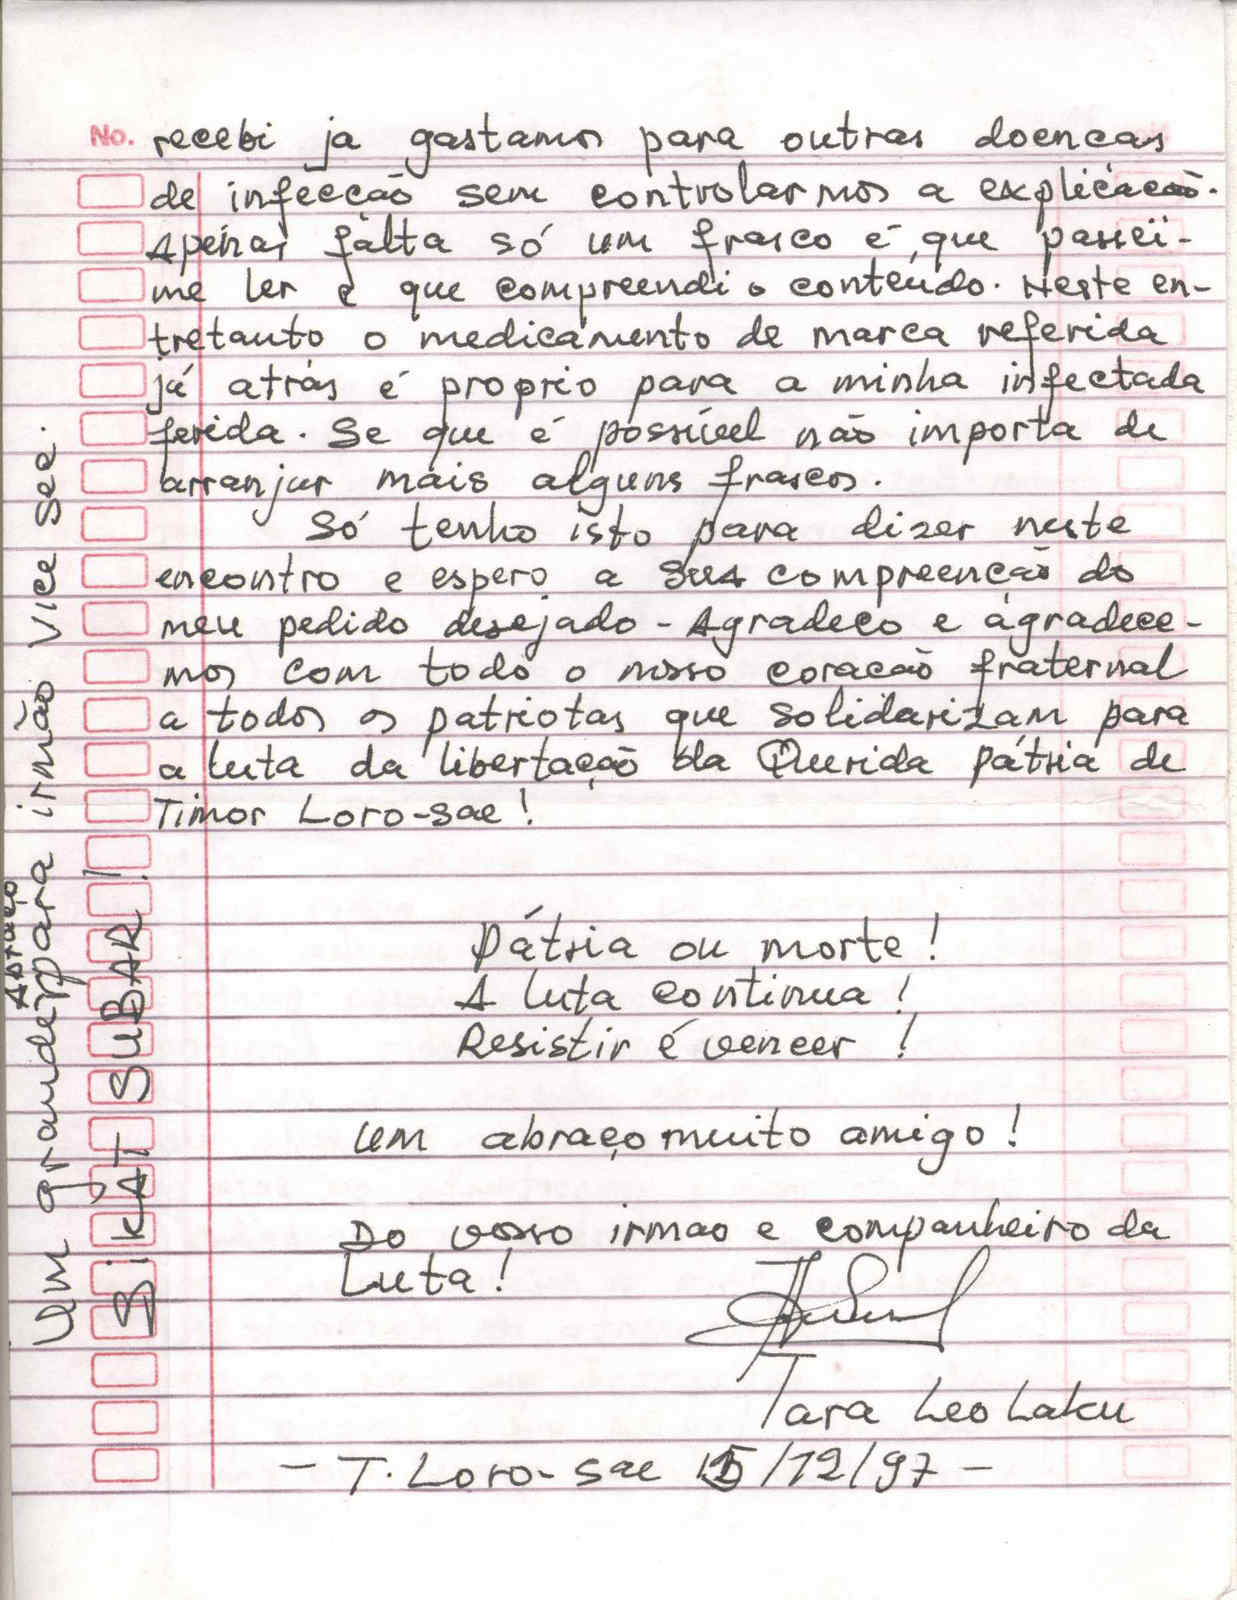 No. recebi ja gastamos para outras doencas
de infecção sem controlarmos a explicacão.
Apenas falta só um frasco é que passei-
me ler e que compreendi o conteúdo. Neste en-
tretanto o medicamento de marca referida
já atrás é proprio para a minha infectada
ferida. Se que é possível não importa de
arranjar mais alguns frascos.
Só tenho isto para dizer neste
encontro e espero a sua compreenção do
meu pedido desejado - Agradeço e agradece-
mos com todo o nosso coracão fraternal
a todos os patriotas que solidarizam para
a luta da libertação da Querida pátria de
Timor Loro-sae!
Pátria ou morte!
A luta continua!
Resistir é vencer!
um abraço muito amigo!
Do vosso irmao e companheiro da
Luta!
Tara Leo Laku
- T. Loro-sae 15/12/97 -
Um grande abraço para irmão Vice Sec.
BiKAT SUBAR!